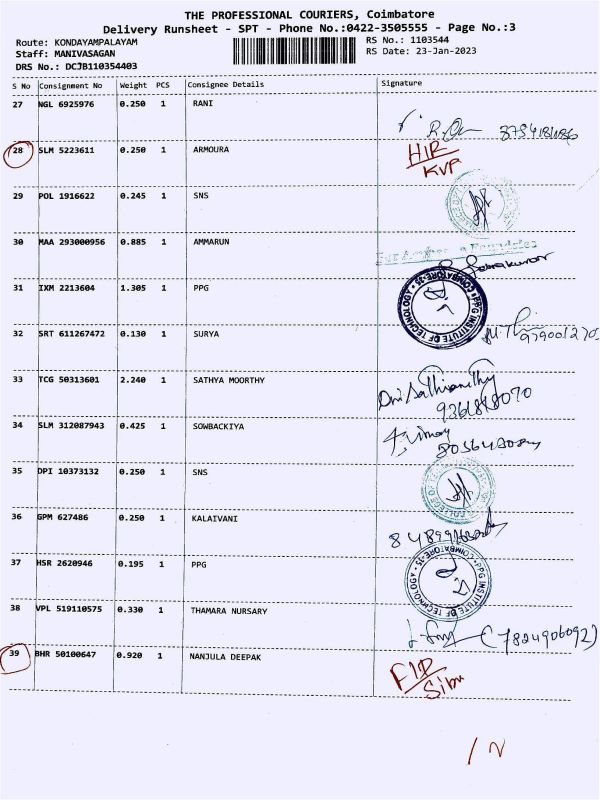 THE PROFESSIONAL COURIERS, Coimbatore
Delivery Runsheet - SPT - Phone No.:0422-3505555 - Page No.:3
Route: KONDAYAMPALAYAM RS No.: 1103544
Staff: MANIVASAGAN RS Date: 23-Jan-2023
DRS No.: DCJB110354403
S No Consignment No Weight PCS Consignee Details Signature
27 NGL 6925976 0.250 1 RANI
28 SLM 5223611 0.250 1 ARMOURA
HIR
KVP
29 POL 1916622 0.245 1 SNS
30 MAA 293000956 0.885 1 AMMARUN
31 IXM 2213604 1.305 1 PPG
PPG INSTITUTE OF TECHNOLOGY COIMBATORE-35
32 SRT 611267472 0.130 1 SURYA
33 TCG 50313601 2.240 1 SATHYA MOORTHY
34 SLM 312087943 0.425 1 SOWBACKIYA
35 DPI 10373132 0.250 1 SNS
36 GPM 627486 0.250 1 KALAIVANI
37 HSR 2620946 0.195 1 PPG
PPG INSTITUTE OF TECHNOLOGY COIMBATORE-35
38 VPL 519110575 0.330 1 THAMARA NURSARY
(7824906092)
39 BHR 50100647 0.920 1 NANJULA DEEPAK